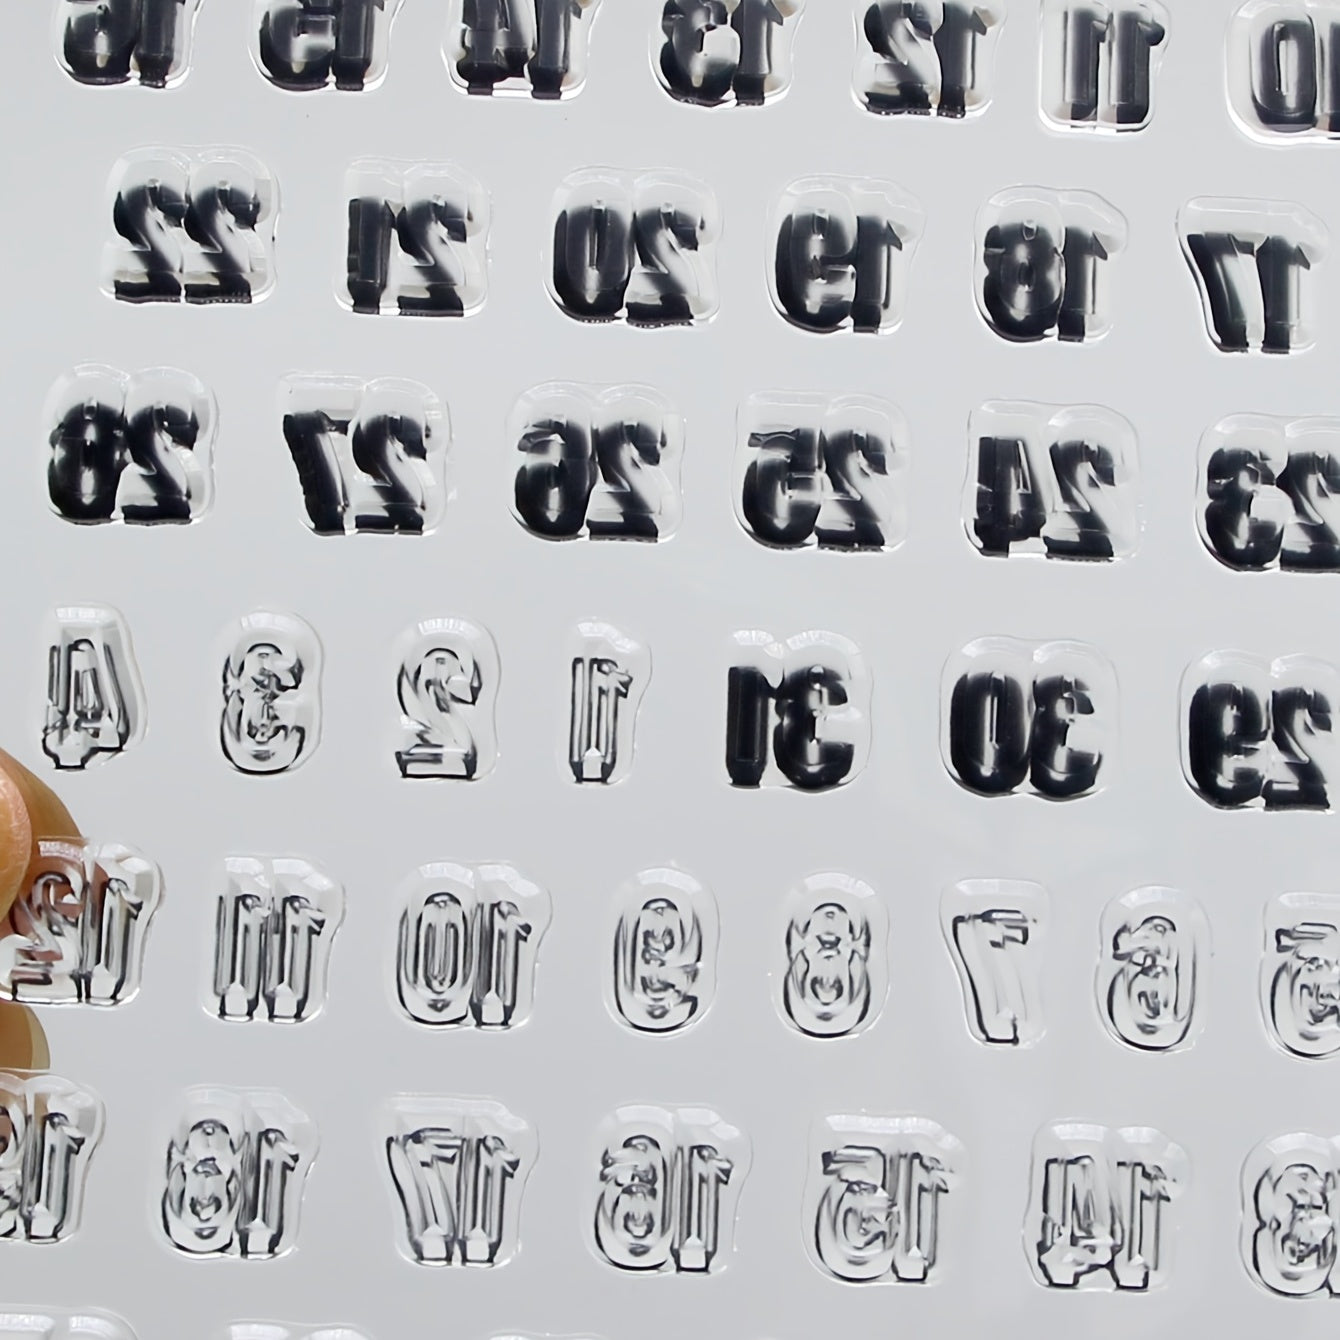 10 11 12 13 14 15 16
17 18 19 20 21 22
23 24 25 26 27 28
29 30 31 1 2 3 4
5 6 7 8 9 10 11 12
13 14 15 16 17 18 19